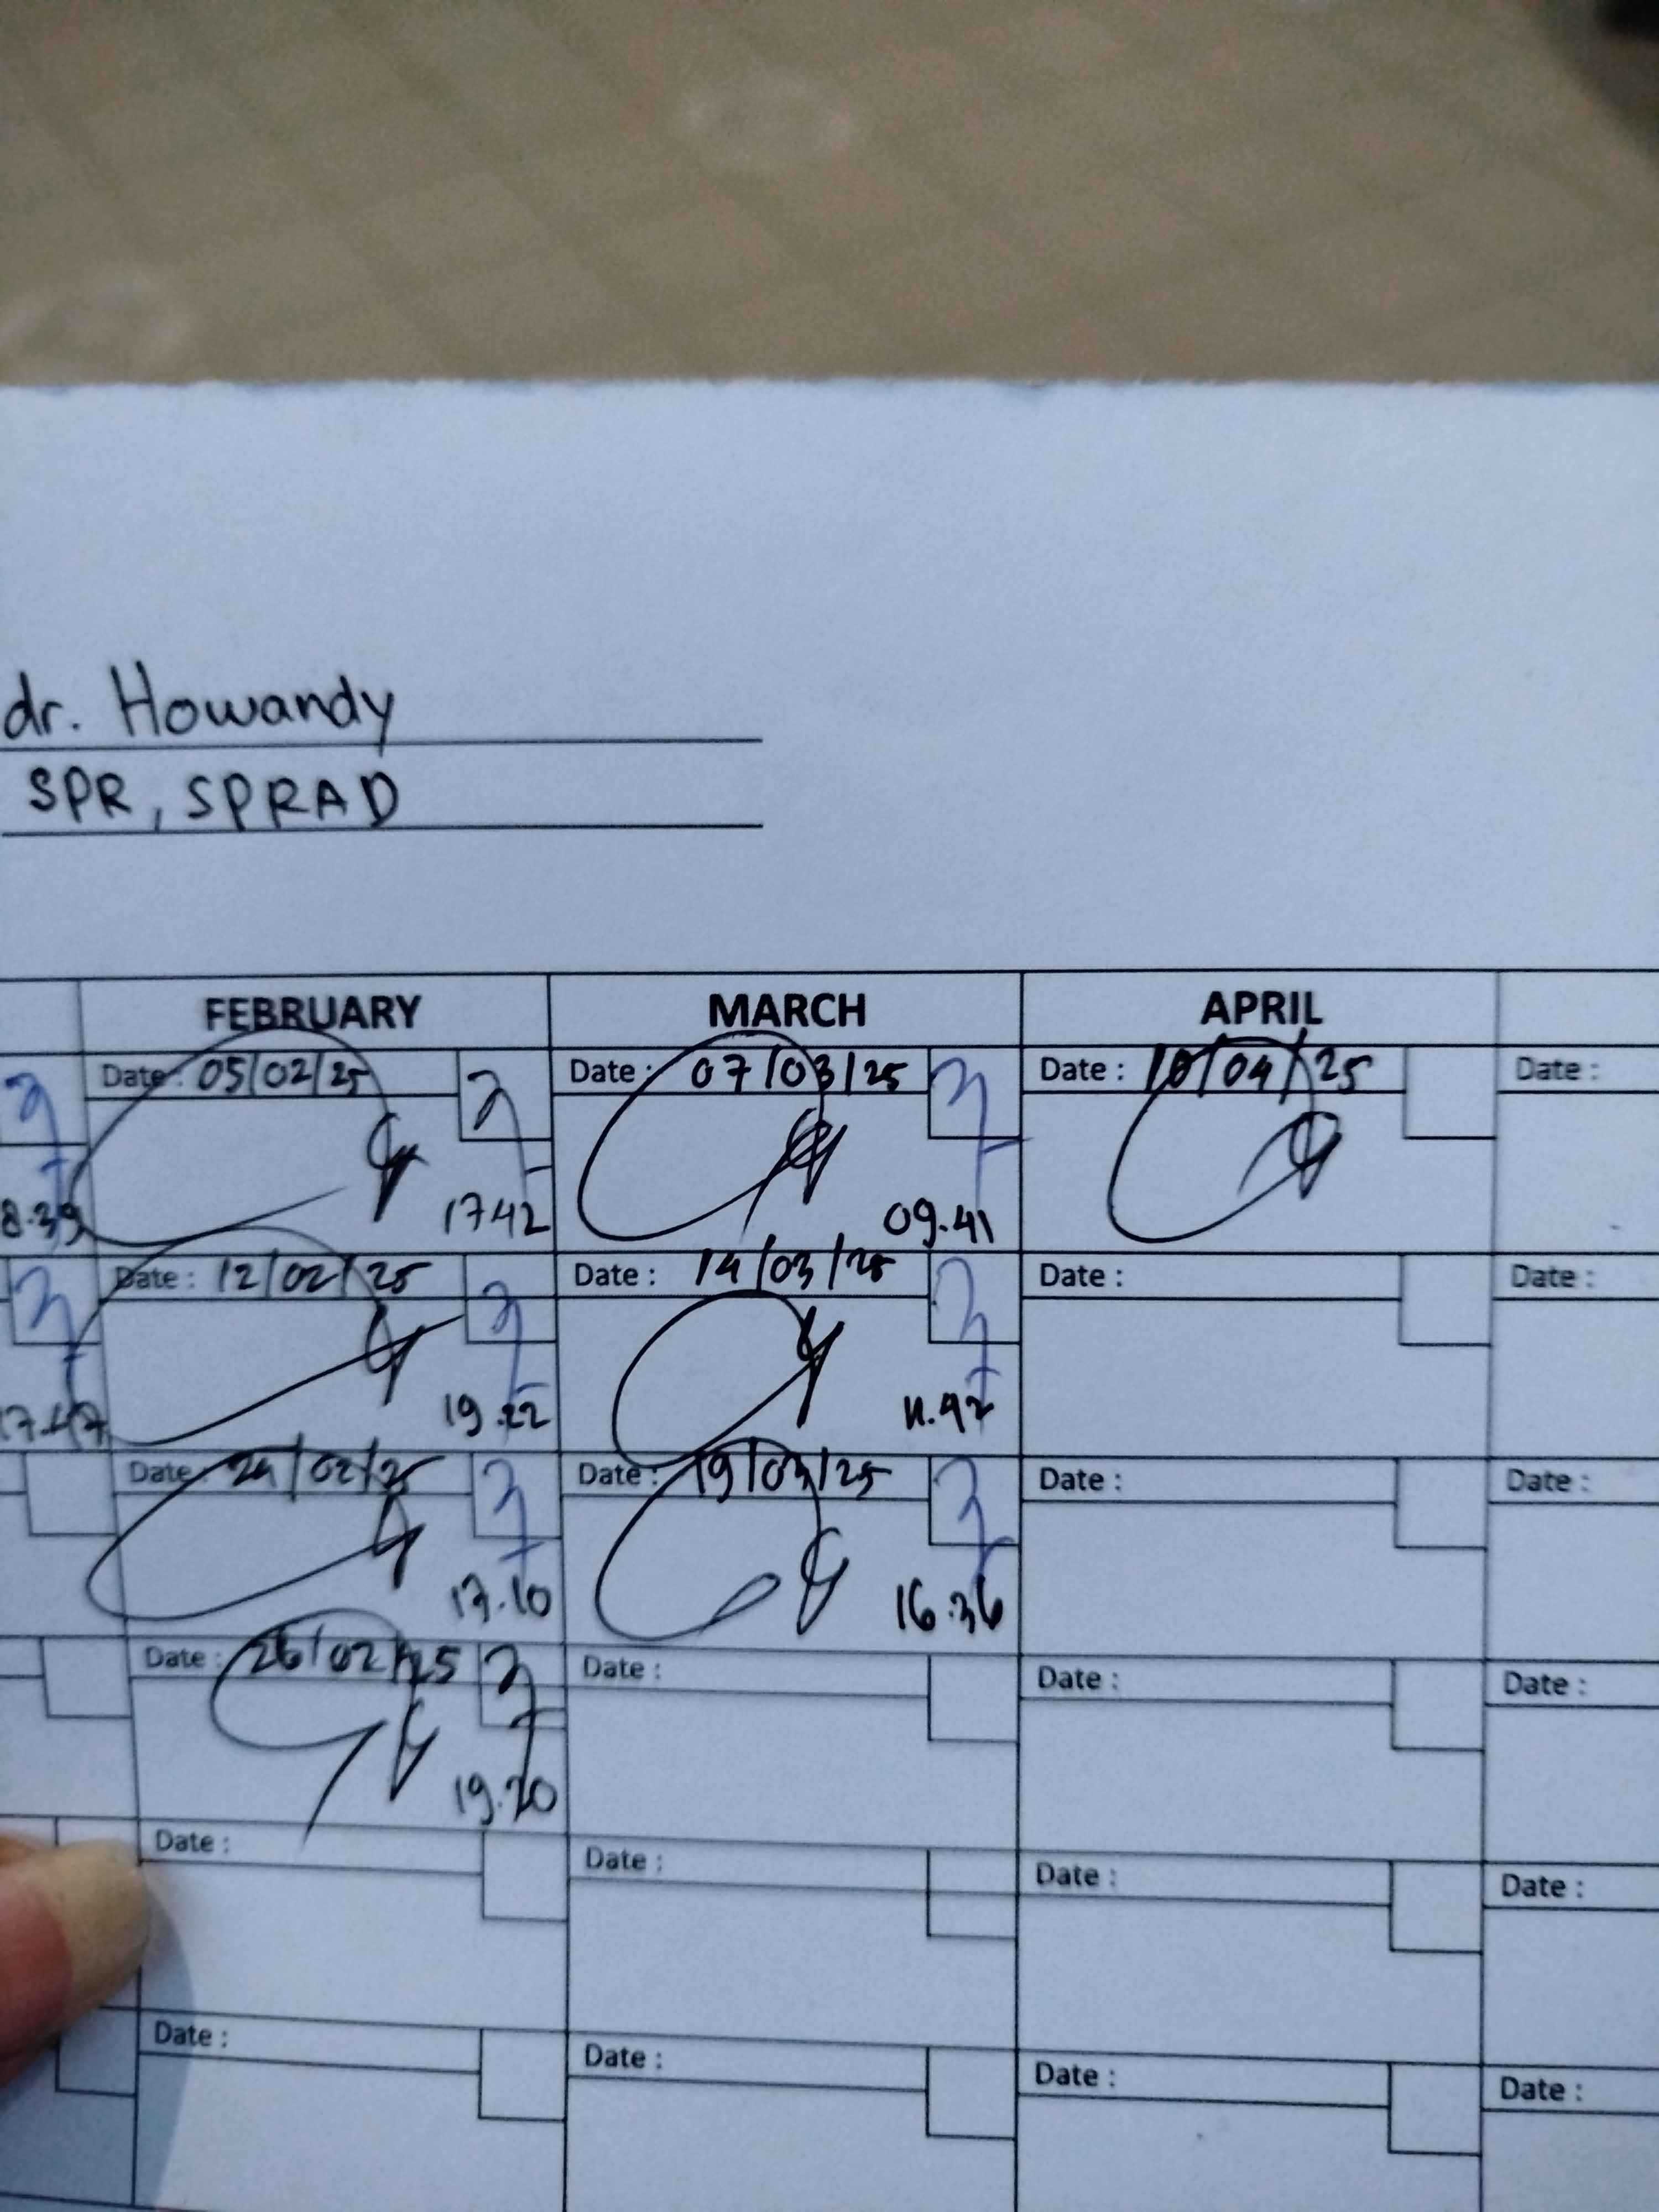 dr. Howandy
SPR, SPRAD
FEBRUARY MARCH APRIL
Date : 05/02/25 Date : 07/03/25 Date : 10/04/25 Date :
8.39 1742 09.41
Date : 12/02/25 Date : 14/03/25 Date : Date :
17.47 19.22 11.47
Date : 24/02/25 Date : 19/03/25 Date : Date :
17.10 16.36
Date : 26/02/25 Date : Date : Date :
19.20
Date : Date : Date : Date :
Date : Date : Date : Date :